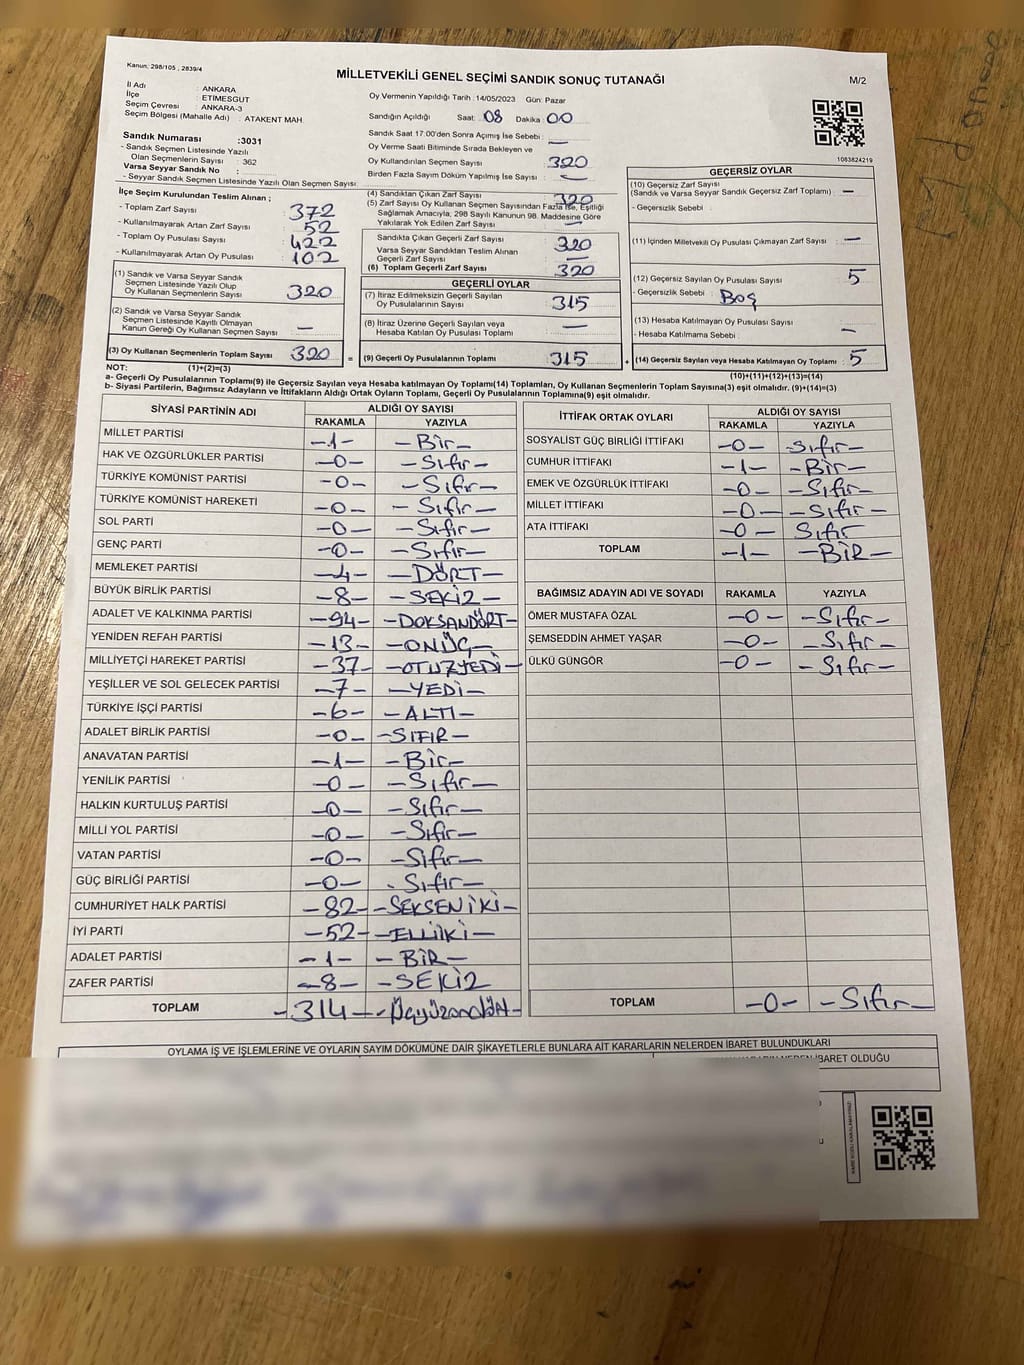 Kanun: 298/105 , 2839/4
MİLLETVEKİLİ GENEL SEÇİMİ SANDIK SONUÇ TUTANAĞI
M/2
İl Adı : ANKARA
İlçe : ETİMESGUT
Seçim Çevresi : ANKARA-3
Seçim Bölgesi (Mahalle Adı) : ATAKENT MAH.
Sandık Numarası :3031
- Sandık Seçmen Listesinde Yazılı
Olan Seçmenlerin Sayısı : 362
Varsa Seyyar Sandık No :
- Seyyar Sandık Seçmen Listesinde Yazılı Olan Seçmen Sayısı:
Oy Vermenin Yapıldığı Tarih :14/05/2023 Gün: Pazar
Sandığın Açıldığı Saat: 08 Dakika: 00
Sandık Saat 17.00'den Sonra Açımış İse Sebebi : —
Oy Verme Saati Bitiminde Sırada Bekleyen ve
Oy Kullandırılan Seçmen Sayısı : 320
Birden Fazla Sayım Döküm Yapılmış İse Sayısı : —
1083824219
İlçe Seçim Kurulundan Teslim Alınan ;
- Toplam Zarf Sayısı : 372
- Kullanılmayarak Artan Zarf Sayısı : 52
- Toplam Oy Pusulası Sayısı : 422
- Kullanılmayarak Artan Oy Pusulası : 102
(1) Sandık ve Varsa Seyyar Sandık
Seçmen Listesinde Yazılı Olup
Oy Kullanan Seçmenlerin Sayısı : 320
(2) Sandık ve Varsa Seyyar Sandık
Seçmen Listesinde Kayıtlı Olmayan
Kanun Gereği Oy Kullanan Seçmen Sayısı : —
(3) Oy Kullanan Seçmenlerin Toplam Sayısı : 320 =
(4) Sandıktan Çıkan Zarf Sayısı : 320
(5) Zarf Sayısı Oy Kullanan Seçmen Sayısından Fazla İse, Eşitliği
Sağlamak Amacıyla, 298 Sayılı Kanunun 98. Maddesine Göre
Yakılarak Yok Edilen Zarf Sayısı : —
Sandıkta Çıkan Geçerli Zarf Sayısı : 320
Varsa Seyyar Sandıktan Teslim Alınan
Geçerli Zarf Sayısı : —
(6) Toplam Geçerli Zarf Sayısı : 320
GEÇERLİ OYLAR
(7) İtiraz Edilmeksizin Geçerli Sayılan
Oy Pusulalarının Sayısı : 315
(8) İtiraz Üzerine Geçerli Sayılan veya
Hesaba Katılan Oy Pusulası Toplamı : —
(9) Geçerli Oy Pusulalarının Toplamı : 315 +
GEÇERSİZ OYLAR
(10) Geçersiz Zarf Sayısı
(Sandık ve Varsa Seyyar Sandık Geçersiz Zarf Toplamı) : —
- Geçersizlik Sebebi :
(11) İçinden Milletvekili Oy Pusulası Çıkmayan Zarf Sayısı : —
(12) Geçersiz Sayılan Oy Pusulası Sayısı : 5
- Geçersizlik Sebebi : Boş
(13) Hesaba Katılmayan Oy Pusulası Sayısı :
- Hesaba Katılmama Sebebi : —
(14) Geçersiz Sayılan veya Hesaba Katılmayan Oy Toplamı : 5
NOT: (1)+(2)=(3) (10)+(11)+(12)+(13)=(14)
a- Geçerli Oy Pusulalarının Toplamı(9) ile Geçersiz Sayılan veya Hesaba katılmayan Oy Toplamı(14) Toplamları, Oy Kullanan Seçmenlerin Toplam Sayısına(3) eşit olmalıdır. (9)+(14)=(3)
b- Siyasi Partilerin, Bağımsız Adayların ve İttifakların Aldığı Oyların Toplamı, Geçerli Oy Pusulalarının Toplamına(9) eşit olmalıdır.
SİYASİ PARTİNİN ADI ALDIĞI OY SAYISI
RAKAMLA YAZIYLA
MİLLET PARTİSİ -1- -Bir-
HAK VE ÖZGÜRLÜKLER PARTİSİ -0- -Sıfır-
TÜRKİYE KOMÜNİST PARTİSİ -0- -Sıfır-
TÜRKİYE KOMÜNİST HAREKETİ -0- -Sıfır-
SOL PARTİ -0- -Sıfır-
GENÇ PARTİ -0- -Sıfır-
MEMLEKET PARTİSİ -4- -DÖRT-
BÜYÜK BİRLİK PARTİSİ -8- -SEKİZ-
ADALET VE KALKINMA PARTİSİ -94- -DOKSANDÖRT-
YENİDEN REFAH PARTİSİ -13- -ONÜÇ-
MİLLİYETÇİ HAREKET PARTİSİ -37- -OTUZYEDİ-
YEŞİLLER VE SOL GELECEK PARTİSİ -7- -YEDİ-
TÜRKİYE İŞÇİ PARTİSİ -6- -ALTI-
ADALET BİRLİK PARTİSİ -0- -SIFIR-
ANAVATAN PARTİSİ -1- -Bir-
YENİLİK PARTİSİ -0- -Sıfır-
HALKIN KURTULUŞ PARTİSİ -0- -Sıfır-
MİLLİ YOL PARTİSİ -0- -Sıfır-
VATAN PARTİSİ -0- -Sıfır-
GÜÇ BİRLİĞİ PARTİSİ -0- -Sıfır-
CUMHURİYET HALK PARTİSİ -82- -SEKSENİKİ-
İYİ PARTİ -52- -ELLİİKİ-
ADALET PARTİSİ -1- -BİR-
ZAFER PARTİSİ -8- -SEKİZ
TOPLAM -314- -Üçyüzondört-
İTTİFAK ORTAK OYLARI ALDIĞI OY SAYISI
RAKAMLA YAZIYLA
SOSYALİST GÜÇ BİRLİĞİ İTTİFAKI -0- Sıfır-
CUMHUR İTTİFAKI -1- -BİR-
EMEK VE ÖZGÜRLÜK İTTİFAKI -0- -Sıfır-
MİLLET İTTİFAKI -0- -Sıfır-
ATA İTTİFAKI -0- Sıfır
TOPLAM -1- -BİR-
BAĞIMSIZ ADAYIN ADI VE SOYADI RAKAMLA YAZIYLA
ÖMER MUSTAFA ÖZAL -0- -Sıfır-
ŞEMSEDDİN AHMET YAŞAR -0- -Sıfır-
ÜLKÜ GÜNGÖR -0- -Sıfır-
TOPLAM -0- -Sıfır-
OYLAMA İŞ VE İŞLEMLERİNE VE OYLARIN SAYIM DÖKÜMÜNE DAİR ŞİKAYETLERLE BUNLARA AİT KARARLARIN NELERDEN İBARET BULUNDUKLARI
İBARET OLDUĞU